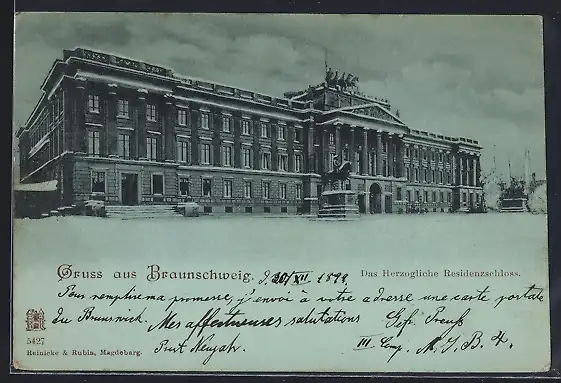 Gruss aus Braunschweig, d. 30/XII. 1898. Das Herzogliche Residenzschloss.
Pour remplir ma promesse, j'y envoi à votre adresse une carte postale
du Brunswick. Mes affectueuses salutations Gefr. Preuß
5427 Prost Neujahr. III. Comp. I. B. 4.
Reinicke & Rubin, Magdeburg.